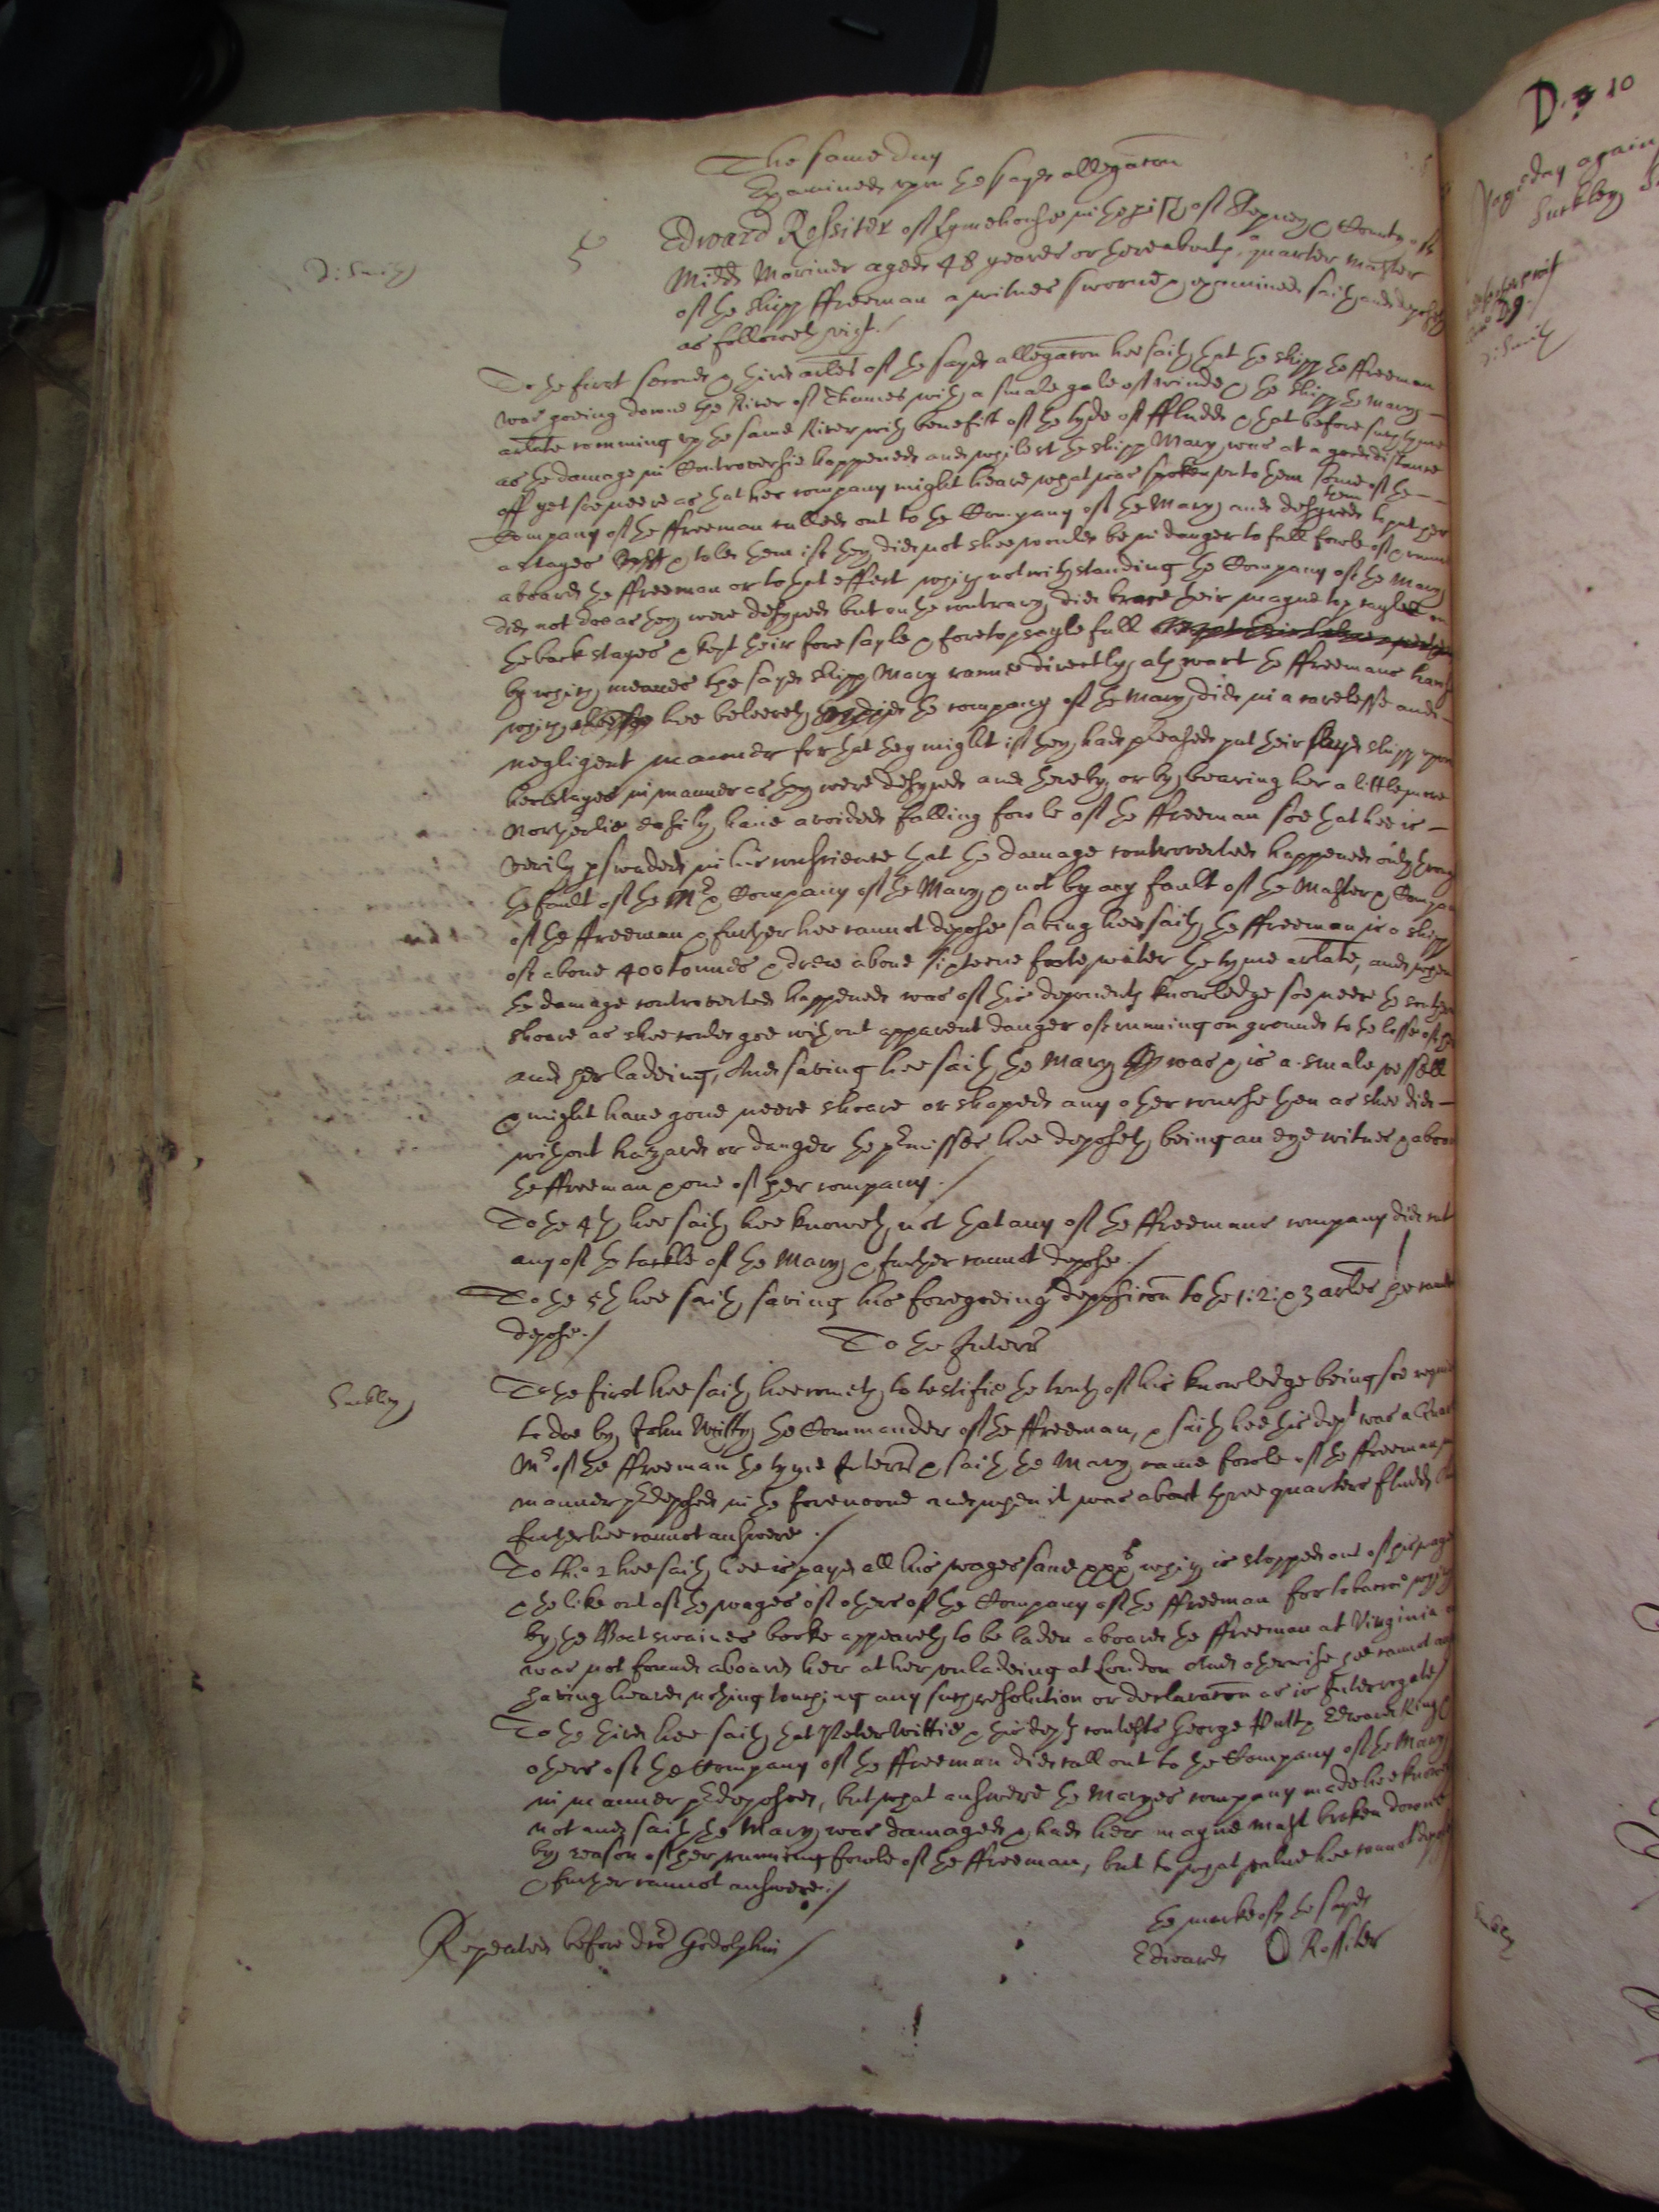 The same day
Examined upon the sayd allegacon
D: Smith
5
Edward Rossiter of Lymehouse in the pish of Stepney & County of
Midds Mariner aged 48 yeares or thereabouts, quarter master
of the shipp ffreeman a witnes sworne & examined saith and deposeth
as followeth vizt./
To the first second & third arles of the sayd allegacon hee saith that the shipp the ffreeman
was goeing downe the River of Thames with a smale gale of winde & the shipp the Mary
arlate comming up the same River with benefitt of the tyde of ffludd & that before such tyme
as the damage in Controversie happened and whilest the shipp Mary was at a good distance
off yet soe neere as that her company might heare what was spoken unto them some of the
Company of the ffreeman called out to the Company of the Mary and desyred them to put her
a stayes & told them if they did not shee would be in danger to fall fowle of & runn
aboard the ffreeman or to that effect which notwithstanding the Company of the Mary
did not doe as they were desyred but on the contrary did brace their mayne top sayle on
the back stayes & kept their fore sayle & foretopsayle full
by which meanes the sayd shipp Mary ranne directly athwart the ffreemans hawse
which hee beleeveth the company of the Mary did in a carelesse and
negligent manner for that they might if they had pleased put their sayd shipp upon
backstayes in manner as they were desyred and thereby or by bearing her a little more
Northerlie easily have avoided falling fowle of the ffreeman soe that hee is
verily pswaded in his conscience that the damage controverted happened only through
the fault of the Mr & Company of the Mary & not by any fault of the Master & Company
of the ffreeman & further hee cannot depose saving hee saith the ffreeman is a shipp
of above 400 tonnes & drew above sixteene foote water the tyme arlate, and when
the damage controverted happened was of this deponents knowledge soe neere the southern
shoare as shee could goe without apparent danger of running on ground to the losse of her
and her ladeing, And saving hee saith the Mary was & is a smale vessell
& might have gone neere shoare or shaped any other course then as shee did
without hazard or danger the pmisses hee deposeth being an eye witnes & aboard
the ffreeman & one of her company./
To the 4th hee saith hee knoweth not that any of the ffreemans company did cut
any of the tackle of the Mary & further cannot depose./
To the 5th hee saith saving his foregoeing deposicon to the 1: 2: & 3 arles hee cannot
depose./
To the Interrs
Suckley
To the first hee saith hee cometh to testifie the truth of his knowledge being soe required
to doe by John Witty the Commander of the ffreeman, & saith hee this dept was a Quarter
Mr of the ffreeman the tyme Interrt & saith the Mary came fowle of the ffreeman in
manner pdeposed in the forenoone and when it was about three quarters fludd And
further hee cannot answere./
To the 2 hee saith hee is payd all his wages save xxxs which is stopped out of his wages
& the like out of the wages of others of the Company of the ffreeman for tobaccoe which
by the Boatswaines booke appeareth to be laden aboard the ffreeman at Virginia &
was not found aboard her at her unladeing at London And otherwise hee cannot answere
having heard nothing touching any such resolution or declaracon as is Interrogate/
To the third hee saith that Peter Wittie & this depts contests George Putt, Edward King &
others of the Company of the ffreeman did call out to the Company of the Mary
in manner pdeposed, but what answere the Maryes company made hee knoweth
not and saith the Mary was damaged & had her mayne mast broken downe
by reason of her running fowle of the ffreeman, but to what value hee cannot depose
& further cannot answere:/
Repeated before dr Godolphin/
the marke of the sayd
Edward O Rossiter
D. 3 10
day again
Suckley
D: Smith
Suckley